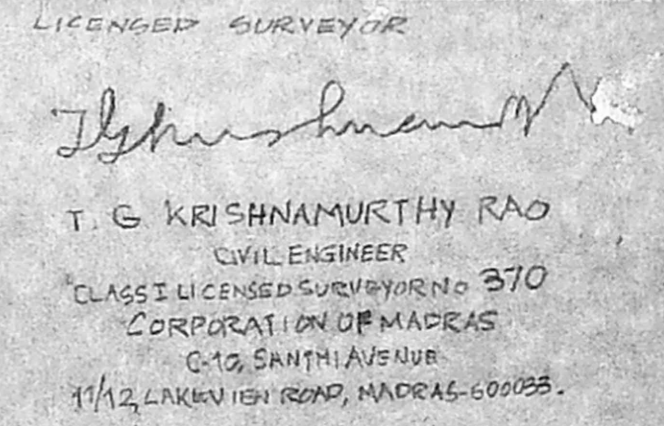 LICENSED SURVEYOR
T. G KRISHNAMURTHY RAO
CIVIL ENGINEER
CLASS I LICENSED SURVEYOR NO 370
CORPORATION OF MADRAS
C-10, SANTHI AVENUE
11/12, LAKEVIEN ROAD, MADRAS-600033.